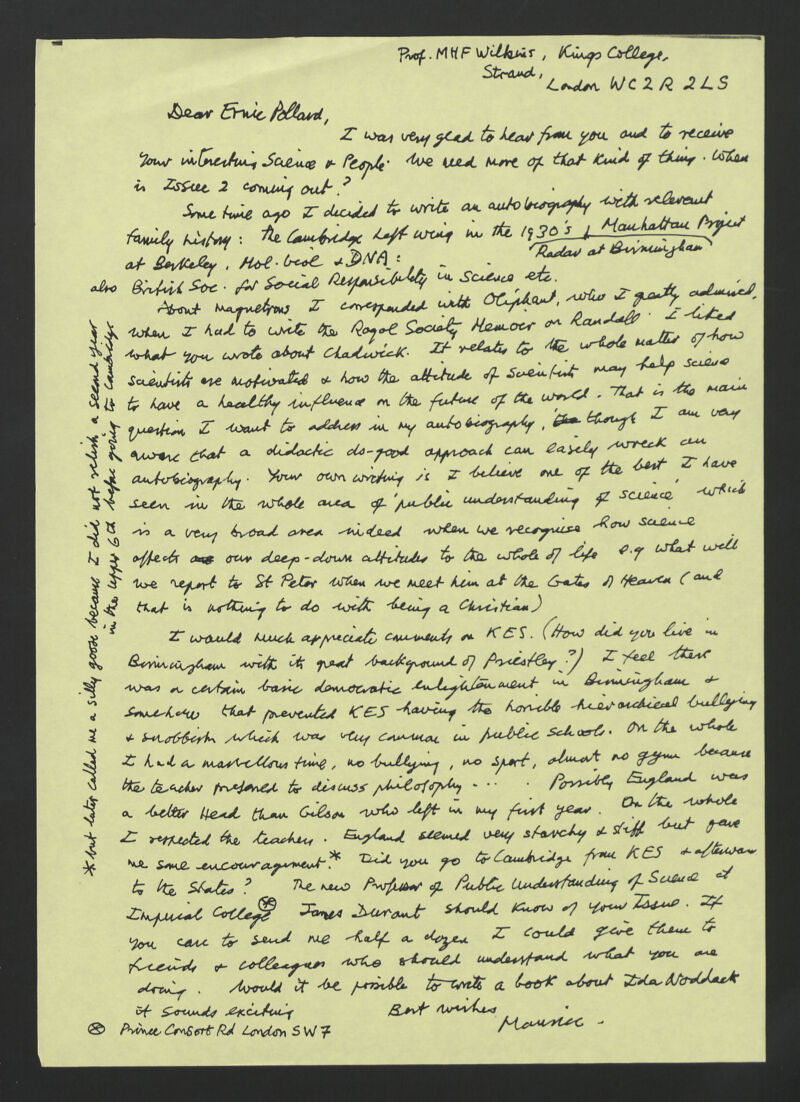 Prof. MHF Wilkins, Kings College,
Strand,
London WC2R 2LS
Dear Ernie Pollard,
I was very glad to hear from you and to receive
your interesting Science & People. We need more of that kind of thing. When
is Issue 2 coming out?
Some time ago I decided to write an autobiography with relevant
family history: the Cambridge left wing in the 1930's, Manhattan Project
Radar at Birmingham
at Berkeley, Mol. biol & DNA:
also British Soc. for Social Responsibility in Science etc.
About magnetrons I corresponded with Oliphant, who I greatly admired,
when I had to write the Royal Society Memoir on Randall. I liked
what you wrote about Chadwick. It relates to the whole matter of how
scientists are motivated & how the attitude of scientist may help science
to have a healthy influence on the future of the world. That is the main
question I want to address in my autobiography, though I am very
aware that a didactic do-good approach can easily wreck an
autobiography. Your own writing is I believe one of the best I have
seen in the whole area of 'public understanding of science' which
is a very broad area indeed when we recognise how science
affects our deep-down attitudes to the whole of life e.g what will
we report to St Peter when we meet him at the Gates of Heaven (and
that is nothing to do with being a Christian)
I would much appreciate comments on KES. (How did you live in
Birmingham with its great background of Priestley?) I feel there
was a certain basic democratic enlightenment in Birmingham &
somehow that prevented KES having the horrible hierarchical bullying
& snobbish which was very common in public schools. On the whole
I had a marvellous time, no bullying, no sport, almost no gym because
the teacher prefered to discuss philosophy - ... . Possibly England was
a better Head than Gilson who left in my first year. On the whole
I respected the teachers. England seemed very starchy & stiff but gave
me some encouragement.* Did you go to Cambridge from KES & afterwar
to the States? The new Professor of Public Understanding of Science at
Imperial College ⊗ James Durant should know of your Issue. If
you care to send me half a dozen I could give them to
friends & colleagues who should understand what you are
doing. Would it be possible to write a book about Ida Noddack
it sounds exciting
Best wishes
Maurice.
⊗ Prince Consort Rd London SW7
* but later called me a silly goose because I did not relish a second year
in the upper 6th before going to Cambridge